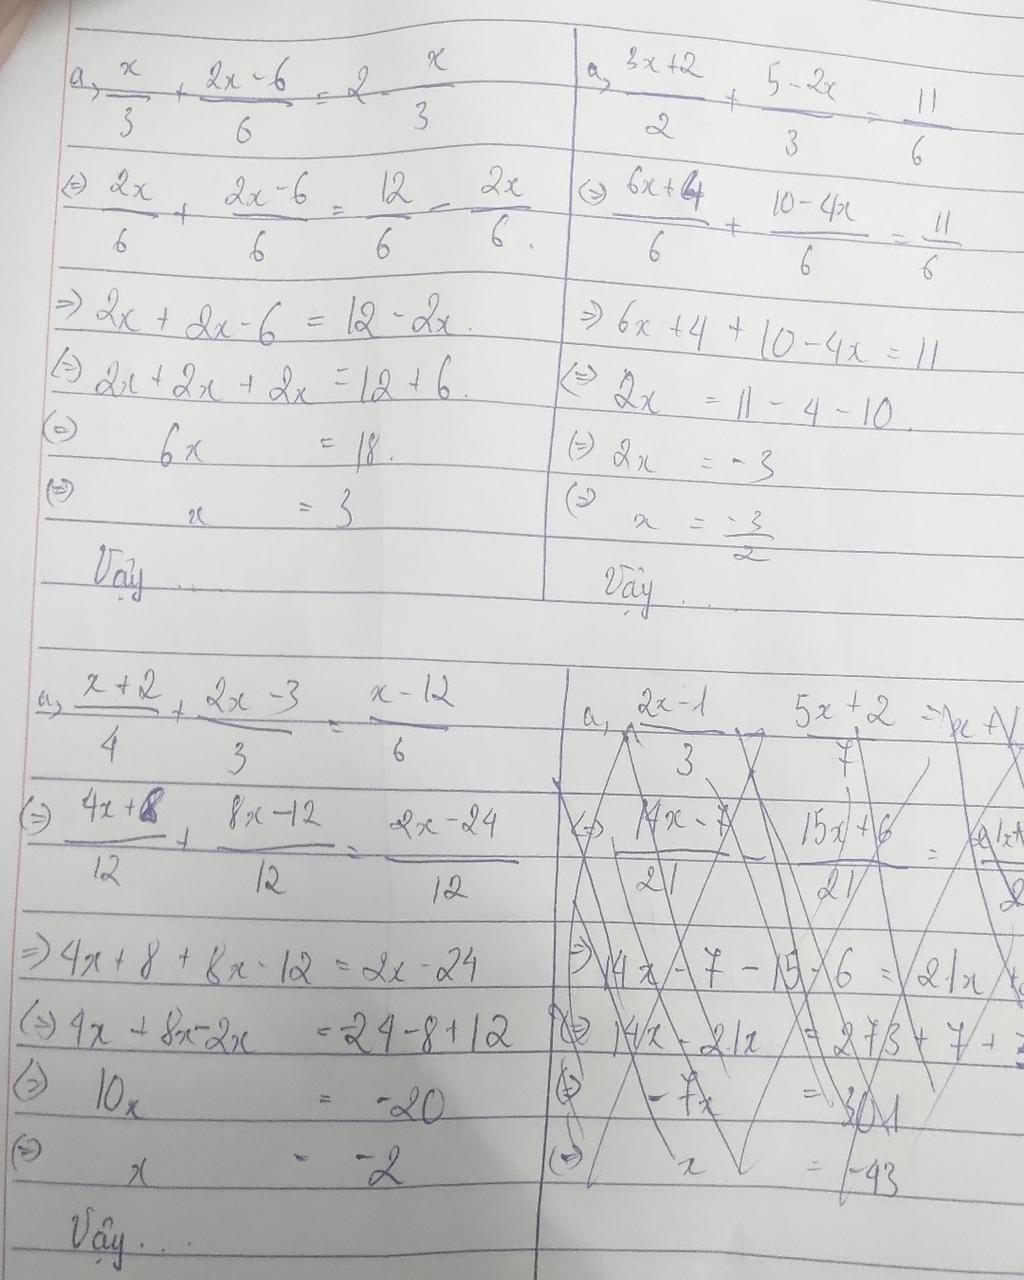 a, x/3 + (2x-6)/6 = 2 - x/3
(=) 2x/6 + (2x-6)/6 = 12/6 - 2x/6.
=) 2x + 2x-6 = 12-2x.
(=) 2x+2x+2x = 12+6.
(=) 6x = 18.
(=) x = 3
Vậy ...
a, (3x+2)/2 + (5-2x)/3 = 11/6
(=) (6x+4)/6 + (10-4x)/6 = 11/6
=) 6x+4+10-4x = 11
(=) 2x = 11-4-10.
(=) 2x = -3
(=) x = -3/2
Vậy ...
a, (x+2)/4 + (2x-3)/3 = (x-12)/6
(=) (4x+8)/12 + (8x-12)/12 = (2x-24)/12
=) 4x+8+8x-12 = 2x-24
(=) 4x+8x-2x = -24-8+12
(=) 10x = -20
(=) x = -2
Vậy ....
a, (2x-1)/3 (5x+2)/7 = x +
(=) (14x-7)/21 - (15x+6)/21 =
=) 14x-7-15-6 = 21x +
(=) 14x-21x = 273+7+
(=) -7x = 301
(=) x = -43